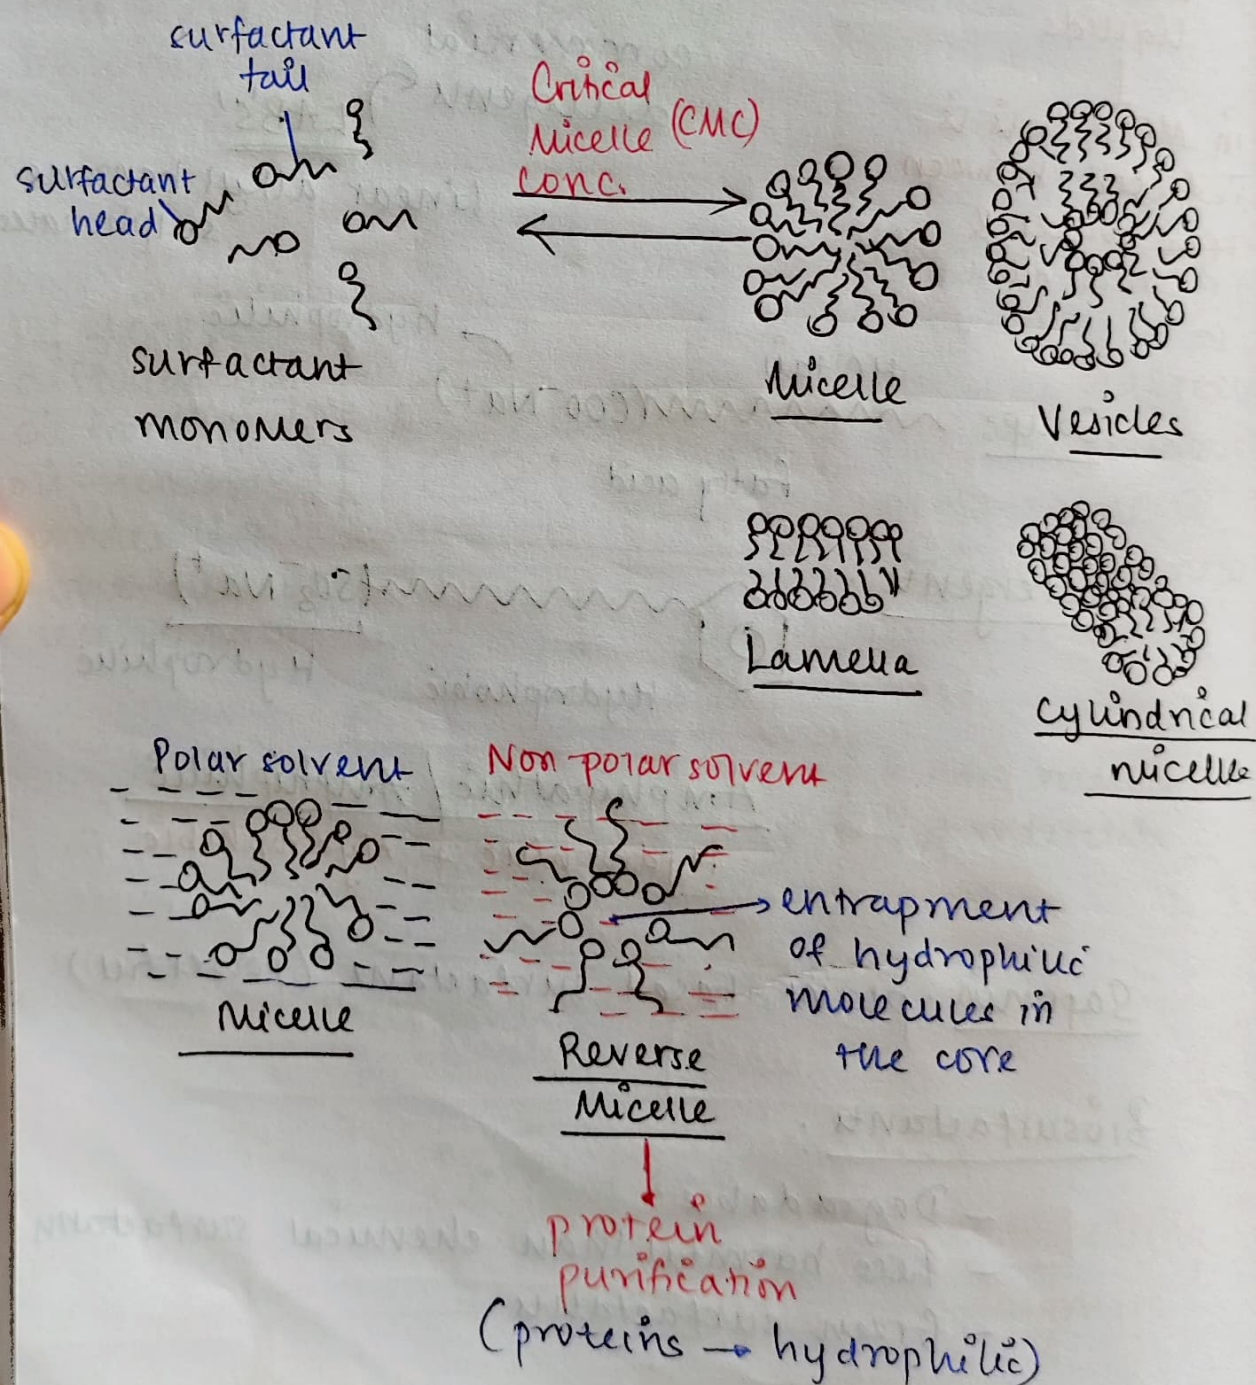 surfactant
tail
surfactant
head
surfactant
monomers
Critical
Micelle (CMC)
conc.
Micelle
Vesicles
Lamella
Cylindrical
micelle
Polar solvent
Micelle
Non-polar solvent
entrapment
of hydrophilic
molecules in
the core
Reverse
Micelle
protein
purification
(proteins → hydrophilic)